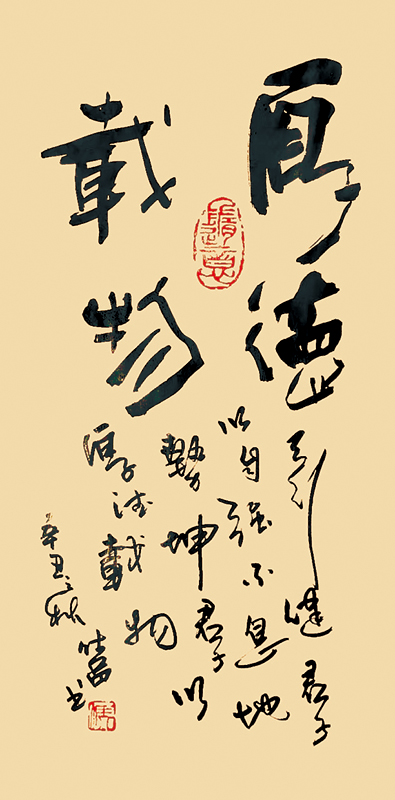 厚德
載物
隨意
天行健君子
以自强不息地
勢坤君子以
厚德載物
辛丑秋
书